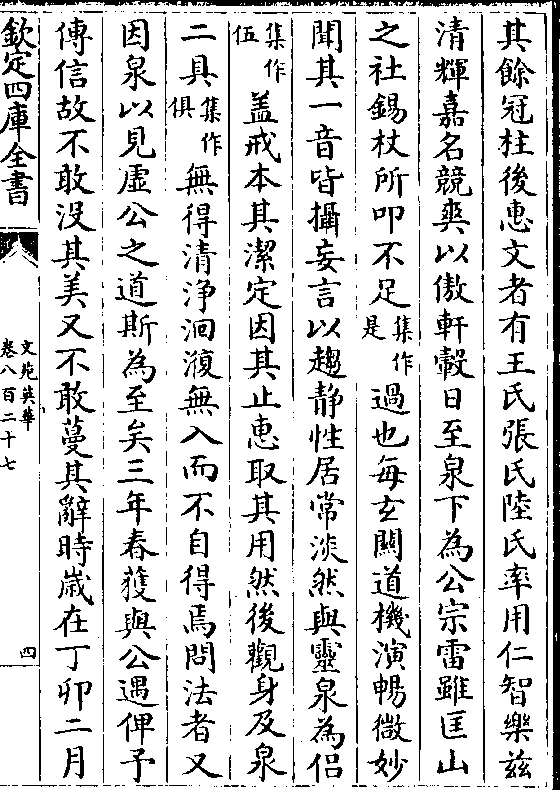 其餘冠柱後惠文者有王氏張氏陸氏率用仁智樂兹
清輝嘉名競爽以傲軒轂日至泉下為公宗雷雖匡山
之社錫杖所叩不足集作是過也每玄關道機演暢微妙
聞其一音皆攝妄言以趨静性居常淡然與靈泉為侣
集作伍盖戒本其潔定因其止惠取其用然後觀身及泉
二具集作俱無得清浄洄澓無入而不自得焉問法者又
因泉以見虛公之道斯為至矣三年春獲與公遇俾予
傳信故不敢没其美又不敢蔓其辭時嵗在丁卯二月
欽定四庫全書
文苑英華
卷八百二十七
四